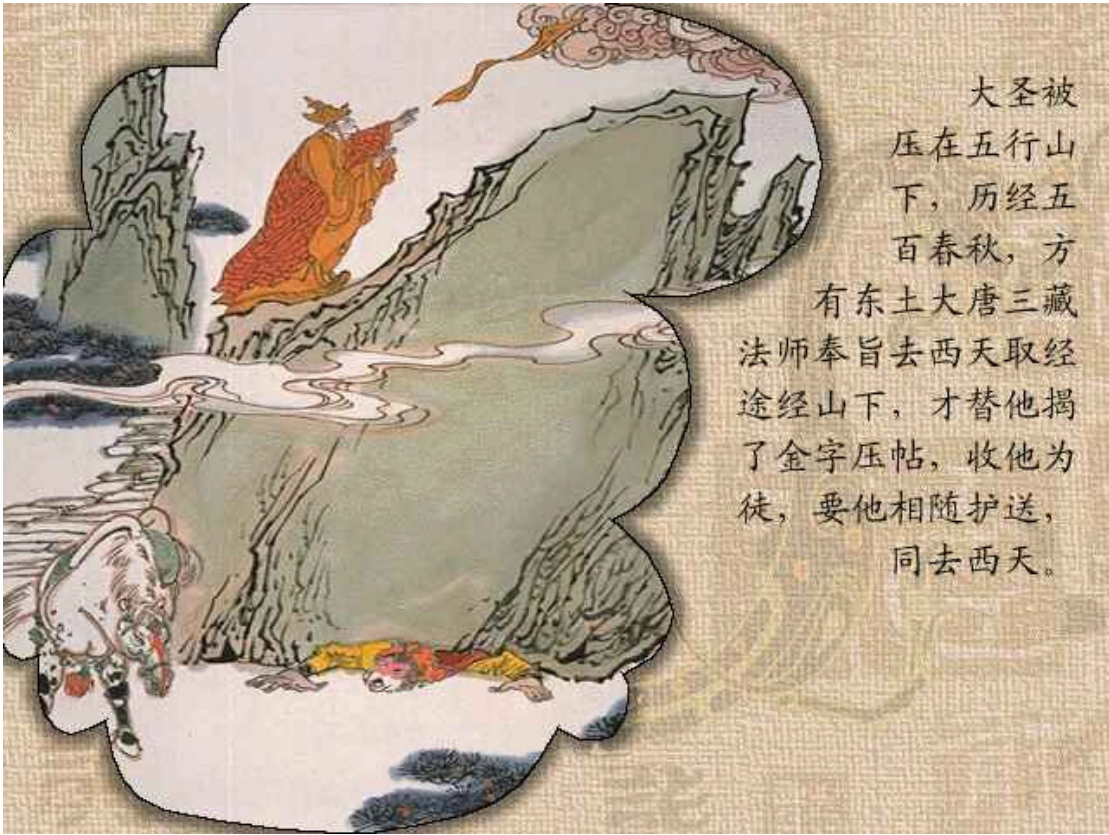 大圣被
压在五行山
下，历经五
百春秋，方
有东土大唐三藏
法师奉旨去西天取经
途经山下，才替他揭
了金字压帖，收他为
徒，要他相随护送，
同去西天。